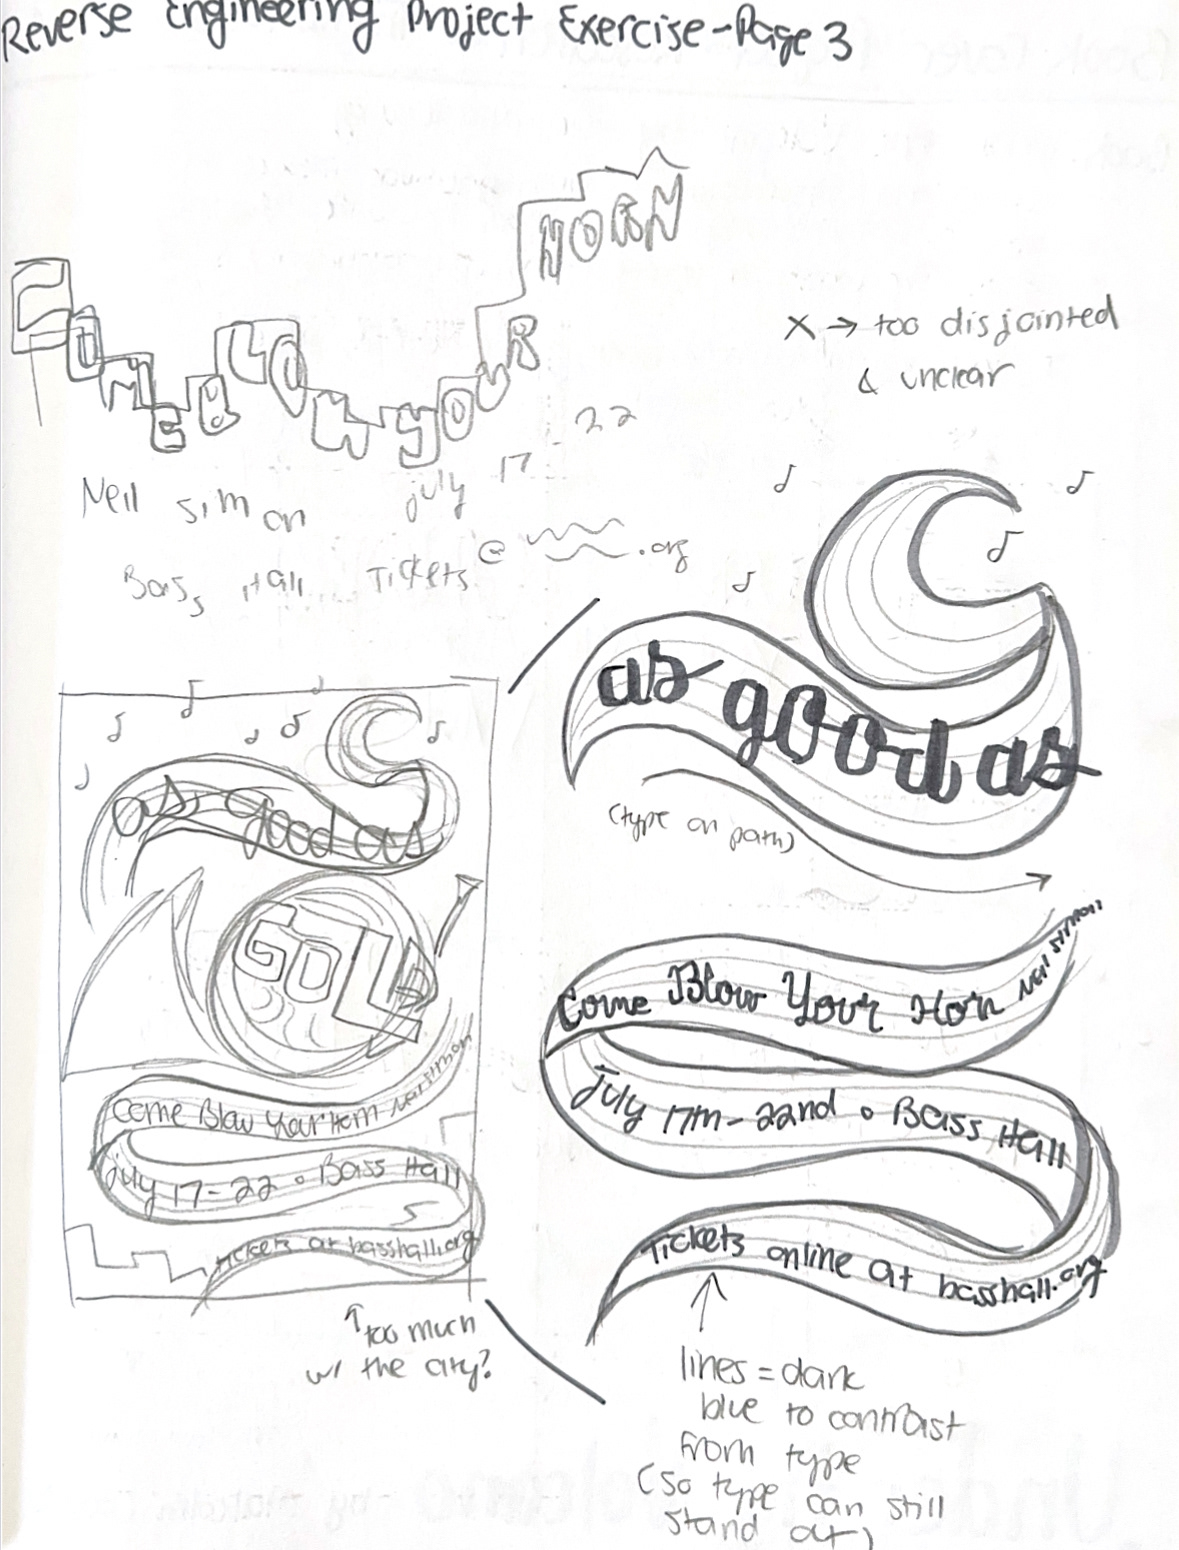 Reverse Engineering Project Exercise-Page 3
COME BLOW YOUR HORN
X → too disjointed
& unclear
Neil Simon July 17 - 22
Bass Hall Tickets @ .org
as good as
(type on path)
as good as
GOLD
Come Blow Your Horn Neil Simon
July 17-22 • Bass Hall
Tickets at basshall.org
↑ too much
w/ the city?
Come Blow Your Hon Neil Simon
July 17th-22nd • Bass Hall
Tickets online at basshall.org
lines = dark
blue to contrast
from type
(so type can still
stand out)